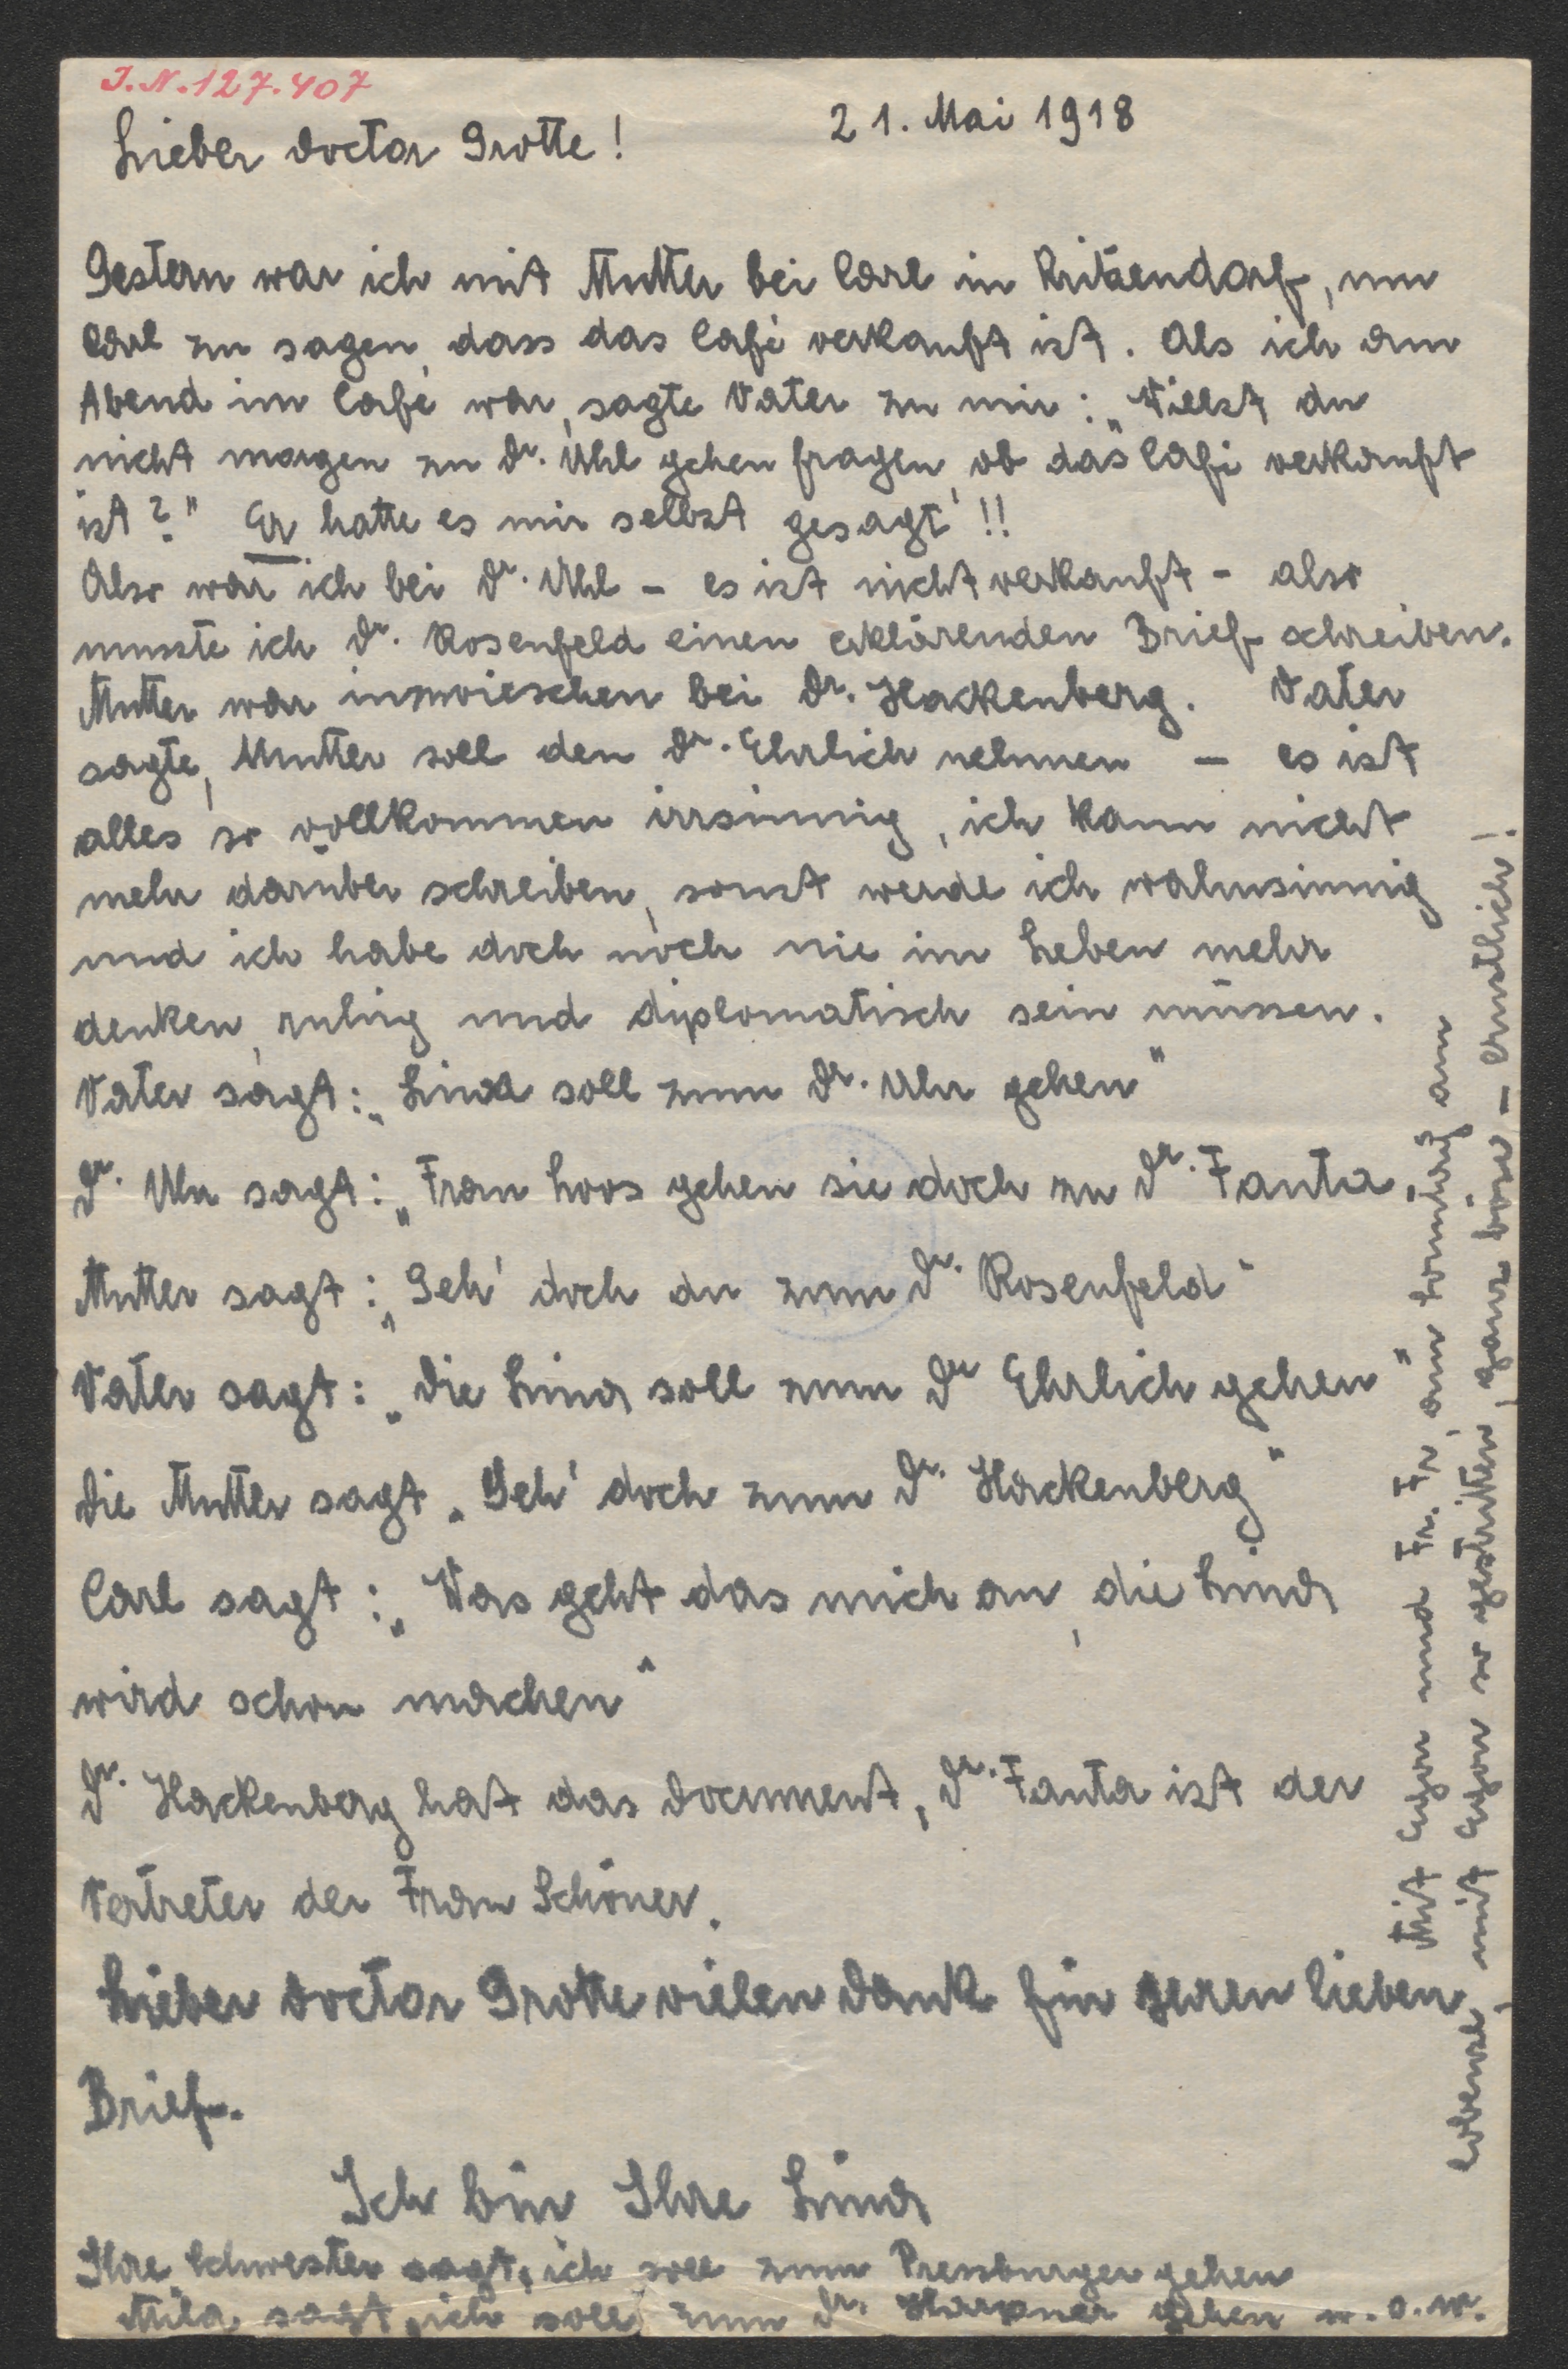 I.N.127.407
21. Mai 1918
Lieber Doctor Grotte!
Gestern war ich mit Mutter bei Carl in Kritzendorf, um
Carl zu sagen, dass das Café verkauft ist. Als ich am
Abend im Café war, sagte Vater zu mir: „Willst du
nicht morgen zu Dr. Uhl gehen fragen, ob das Café verkauft
ist?" Er hatte es mir selbst gesagt!!!
Also war ich bei Dr. Uhl – es ist nicht verkauft – also
musste ich Dr. Rosenfeld einen erklärenden Brief schreiben.
Mutter war inzwieschen bei Dr. Hackenberg. Vater
sagte, Mutter soll den Dr. Ehrlich nehmen – es ist
alles so vollkommen irrsinnig, ich kann nicht
mehr darüber schreiben, sonst werde ich wahnsinnig
und ich habe doch noch nie im Leben mehr
denken, ruhig und diplomatisch sein müssen.
Vater sagt: „Lina soll zum Dr. Uhl gehen"
Dr. Uhl sagt: „Frau Loos gehen sie doch zu Dr. Fanta,
Mutter sagt: „Geh' doch du zum Dr. Rosenfeld"
Vater sagt: „Die Lina soll zum Dr Ehrlich gehen"
Die Mutter sagt „Geh' doch zum Dr. Hackenberg"
Carl sagt: „Was geht das mich an, die Lina
wird schon machen"
Dr. Hackenberg hat das Document, Dr. Fanta ist der
Vertreter der Frau Schöner.
Lieber Doctor Grotte vielen Dank für Ihren lieben
Brief.
Ich bin Ihre Lina
Ihre Schwester sagt, ich soll zum Pressburger gehen
Mila sagt, ich soll zum Dr. Harpner gehen u.s.w.
Mit Egon und Fr. Fr. am Sonntag am
Cobenzl, mit Egon so gestritten, ganz böse – ernstlich!